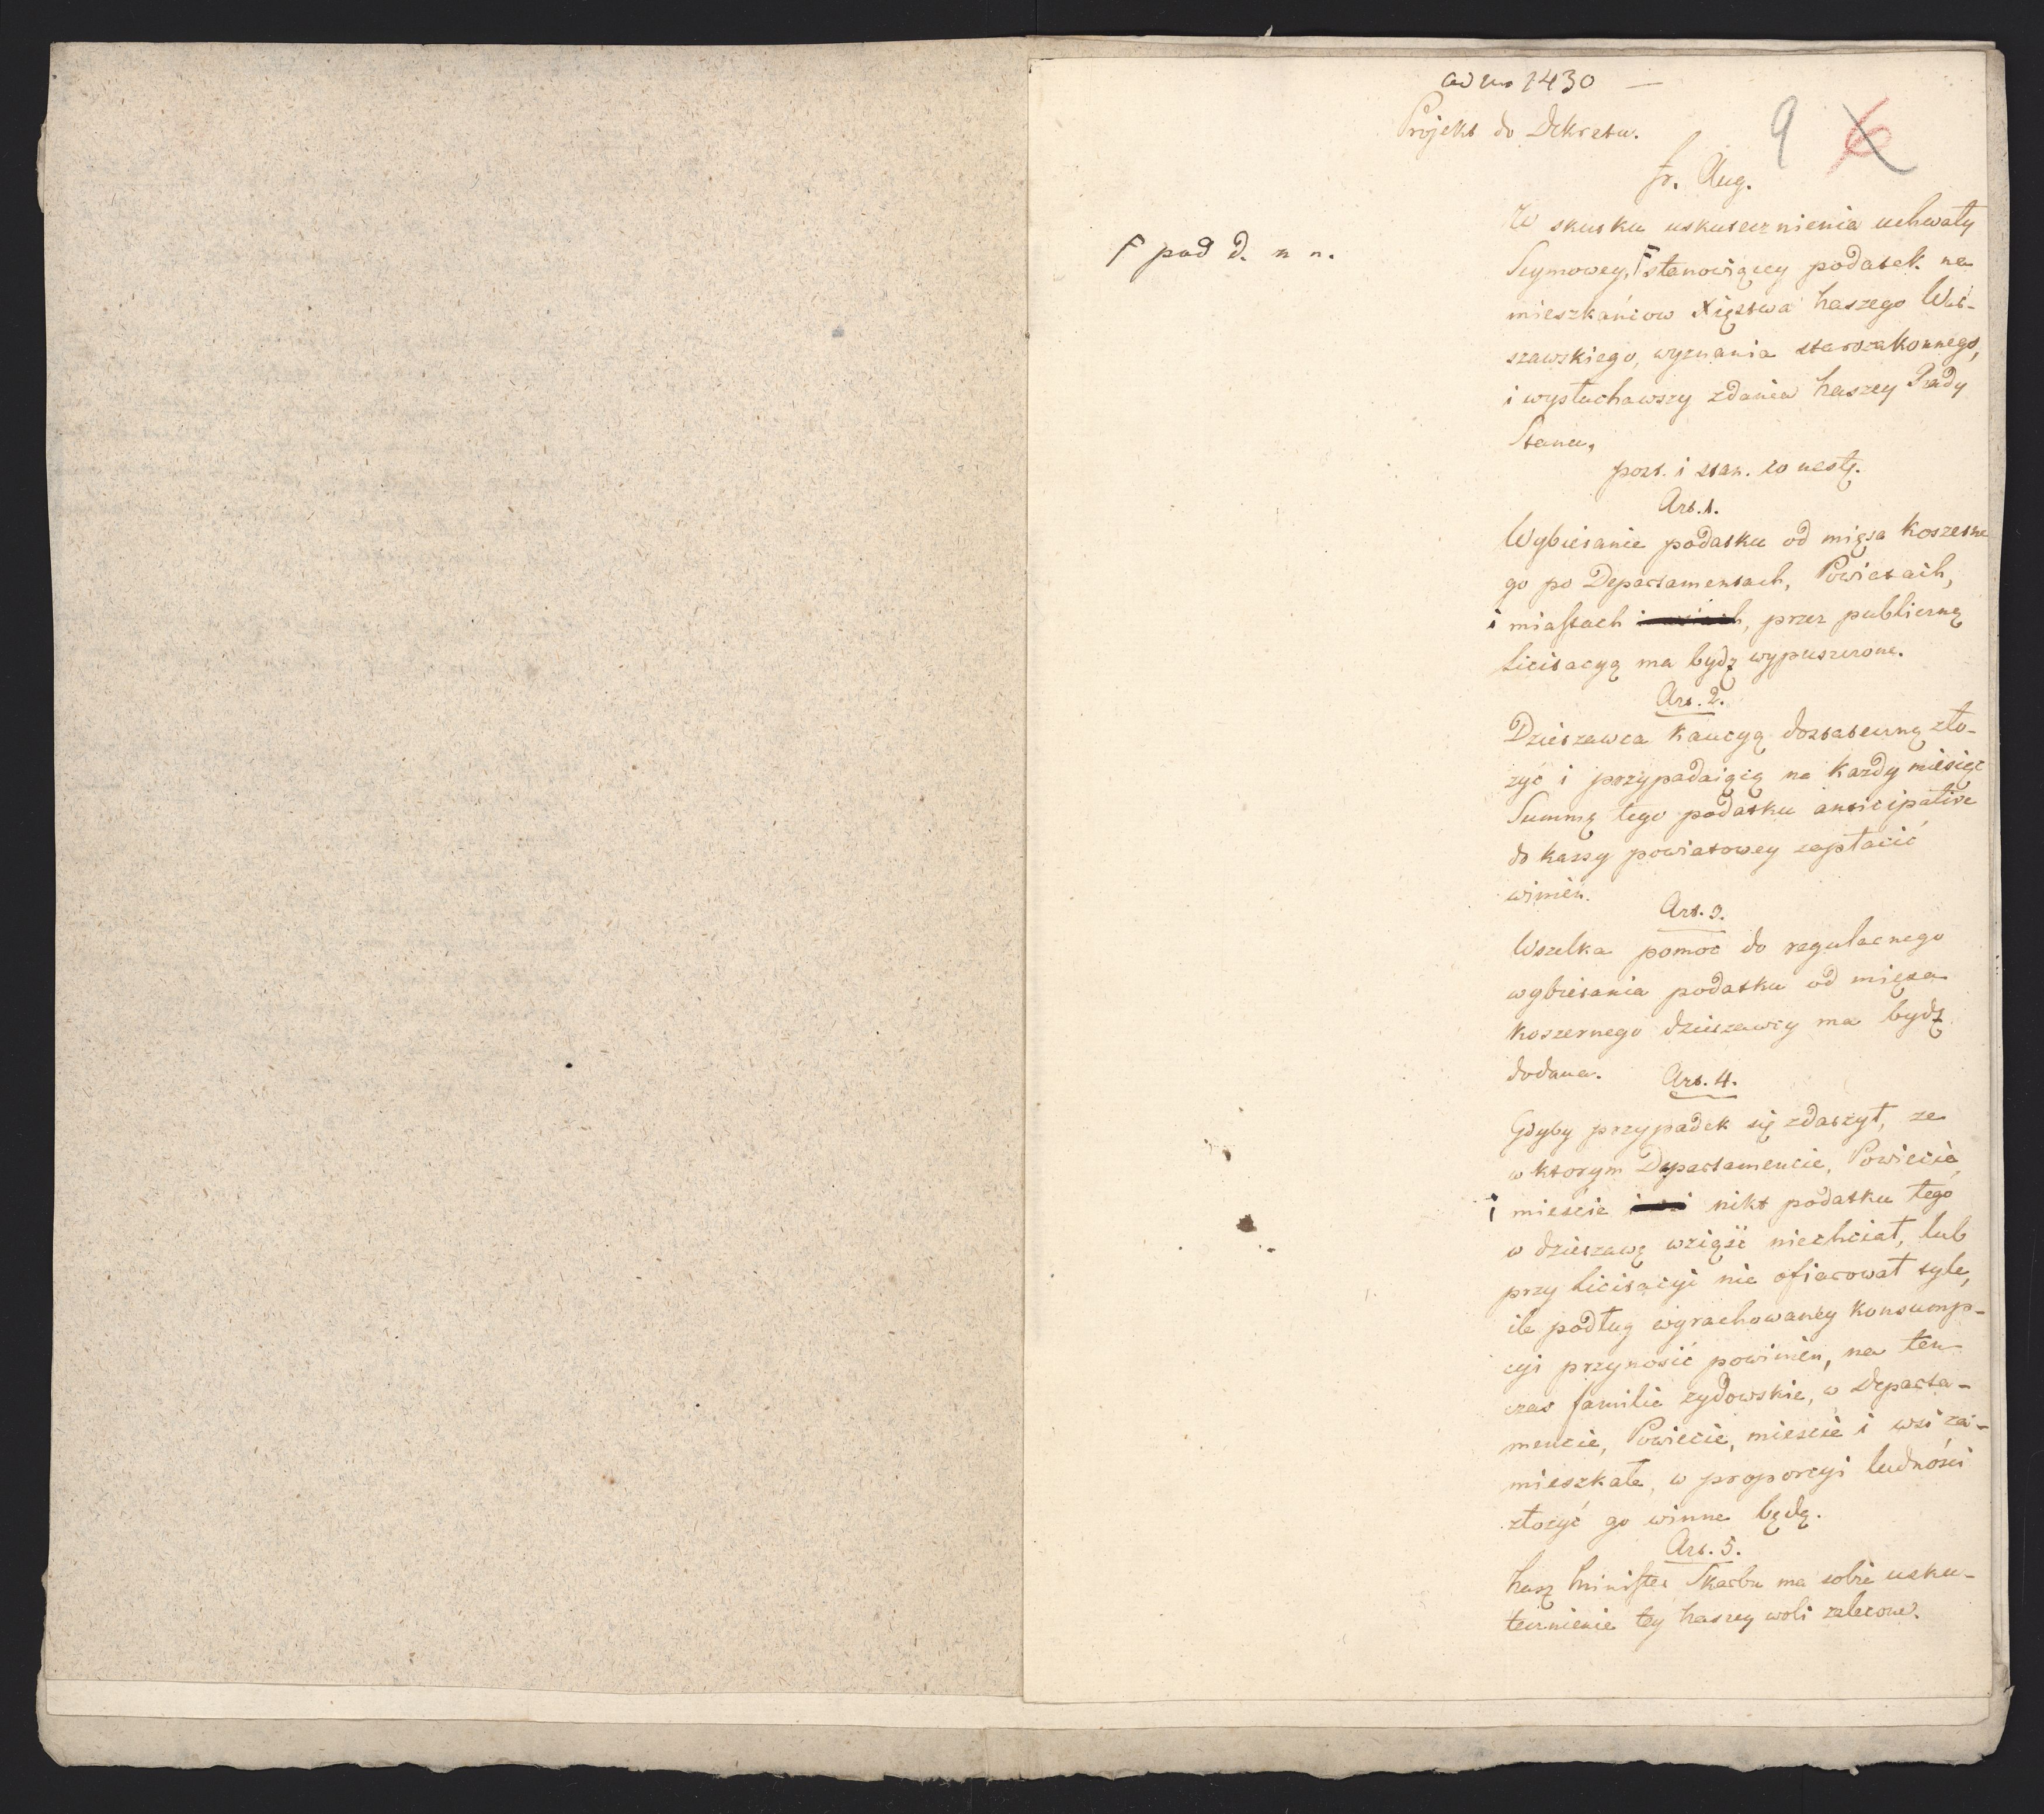 ad no 1430 —
Projekt do Dekretu.
9 6
fr. Aug.
W skutku uskutecznienia uchwały
F pod d. n n.
Seymowey, F stanowiącey podatek na
mieszkańcow Xięstwa Naszego War-
szawskiego, wyznania starozakonnego,
i wysłuchawszy zdania Naszey Rady
Stanu,
post. i stan. co nastę.
Art. 1.
Wybieranie podatku od mięsa koszerne
go po Departamentach, Powiatach,
i miastach, przez publiczną
licitacyą ma bydz wypuszczone.
Art. 2.
Dzierzawca kaucyą dostateczną zło-
zyć i przypadaiącą na kazdy miesiąc
Summę tego podatku anticipative
do kassy powiatowey zapłacić
winien.
Art. 3.
Wszelka pomoc do regularnego
wybierania podatku od mięsa
koszernego dzierzawcy ma bydz
dodana.
Art. 4.
Gdyby przypadek się zdarzył, ze
w ktorym Departamencie, Powiecie,
i mieście nikt podatku tego
w dzierzawę wziąść niechciał, lub
przy licitacyi nie ofiarował tyle,
ile podług wyrachowaney konsump-
cyi przynosić powinien, na ten-
czas familie zydowskie, w Departa-
mencie, Powiecie, mieście i wsi za-
mieszkałe, w proporcyi ludności
złozyć go winne będą.
Art. 5.
Nasz Minister Skarbu ma sobie usku-
tecznienie tey Naszey woli zalecone.